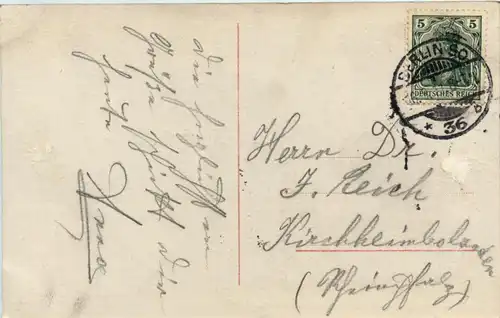 Die herzlichsten
Grüße schickt Dir
heute
Anna
5 5
DEUTSCHES REICH
BERLIN SO
* 36
Herrn Dr.
J. Reich
Kirchheimbolanden
(Rheinpfalz)